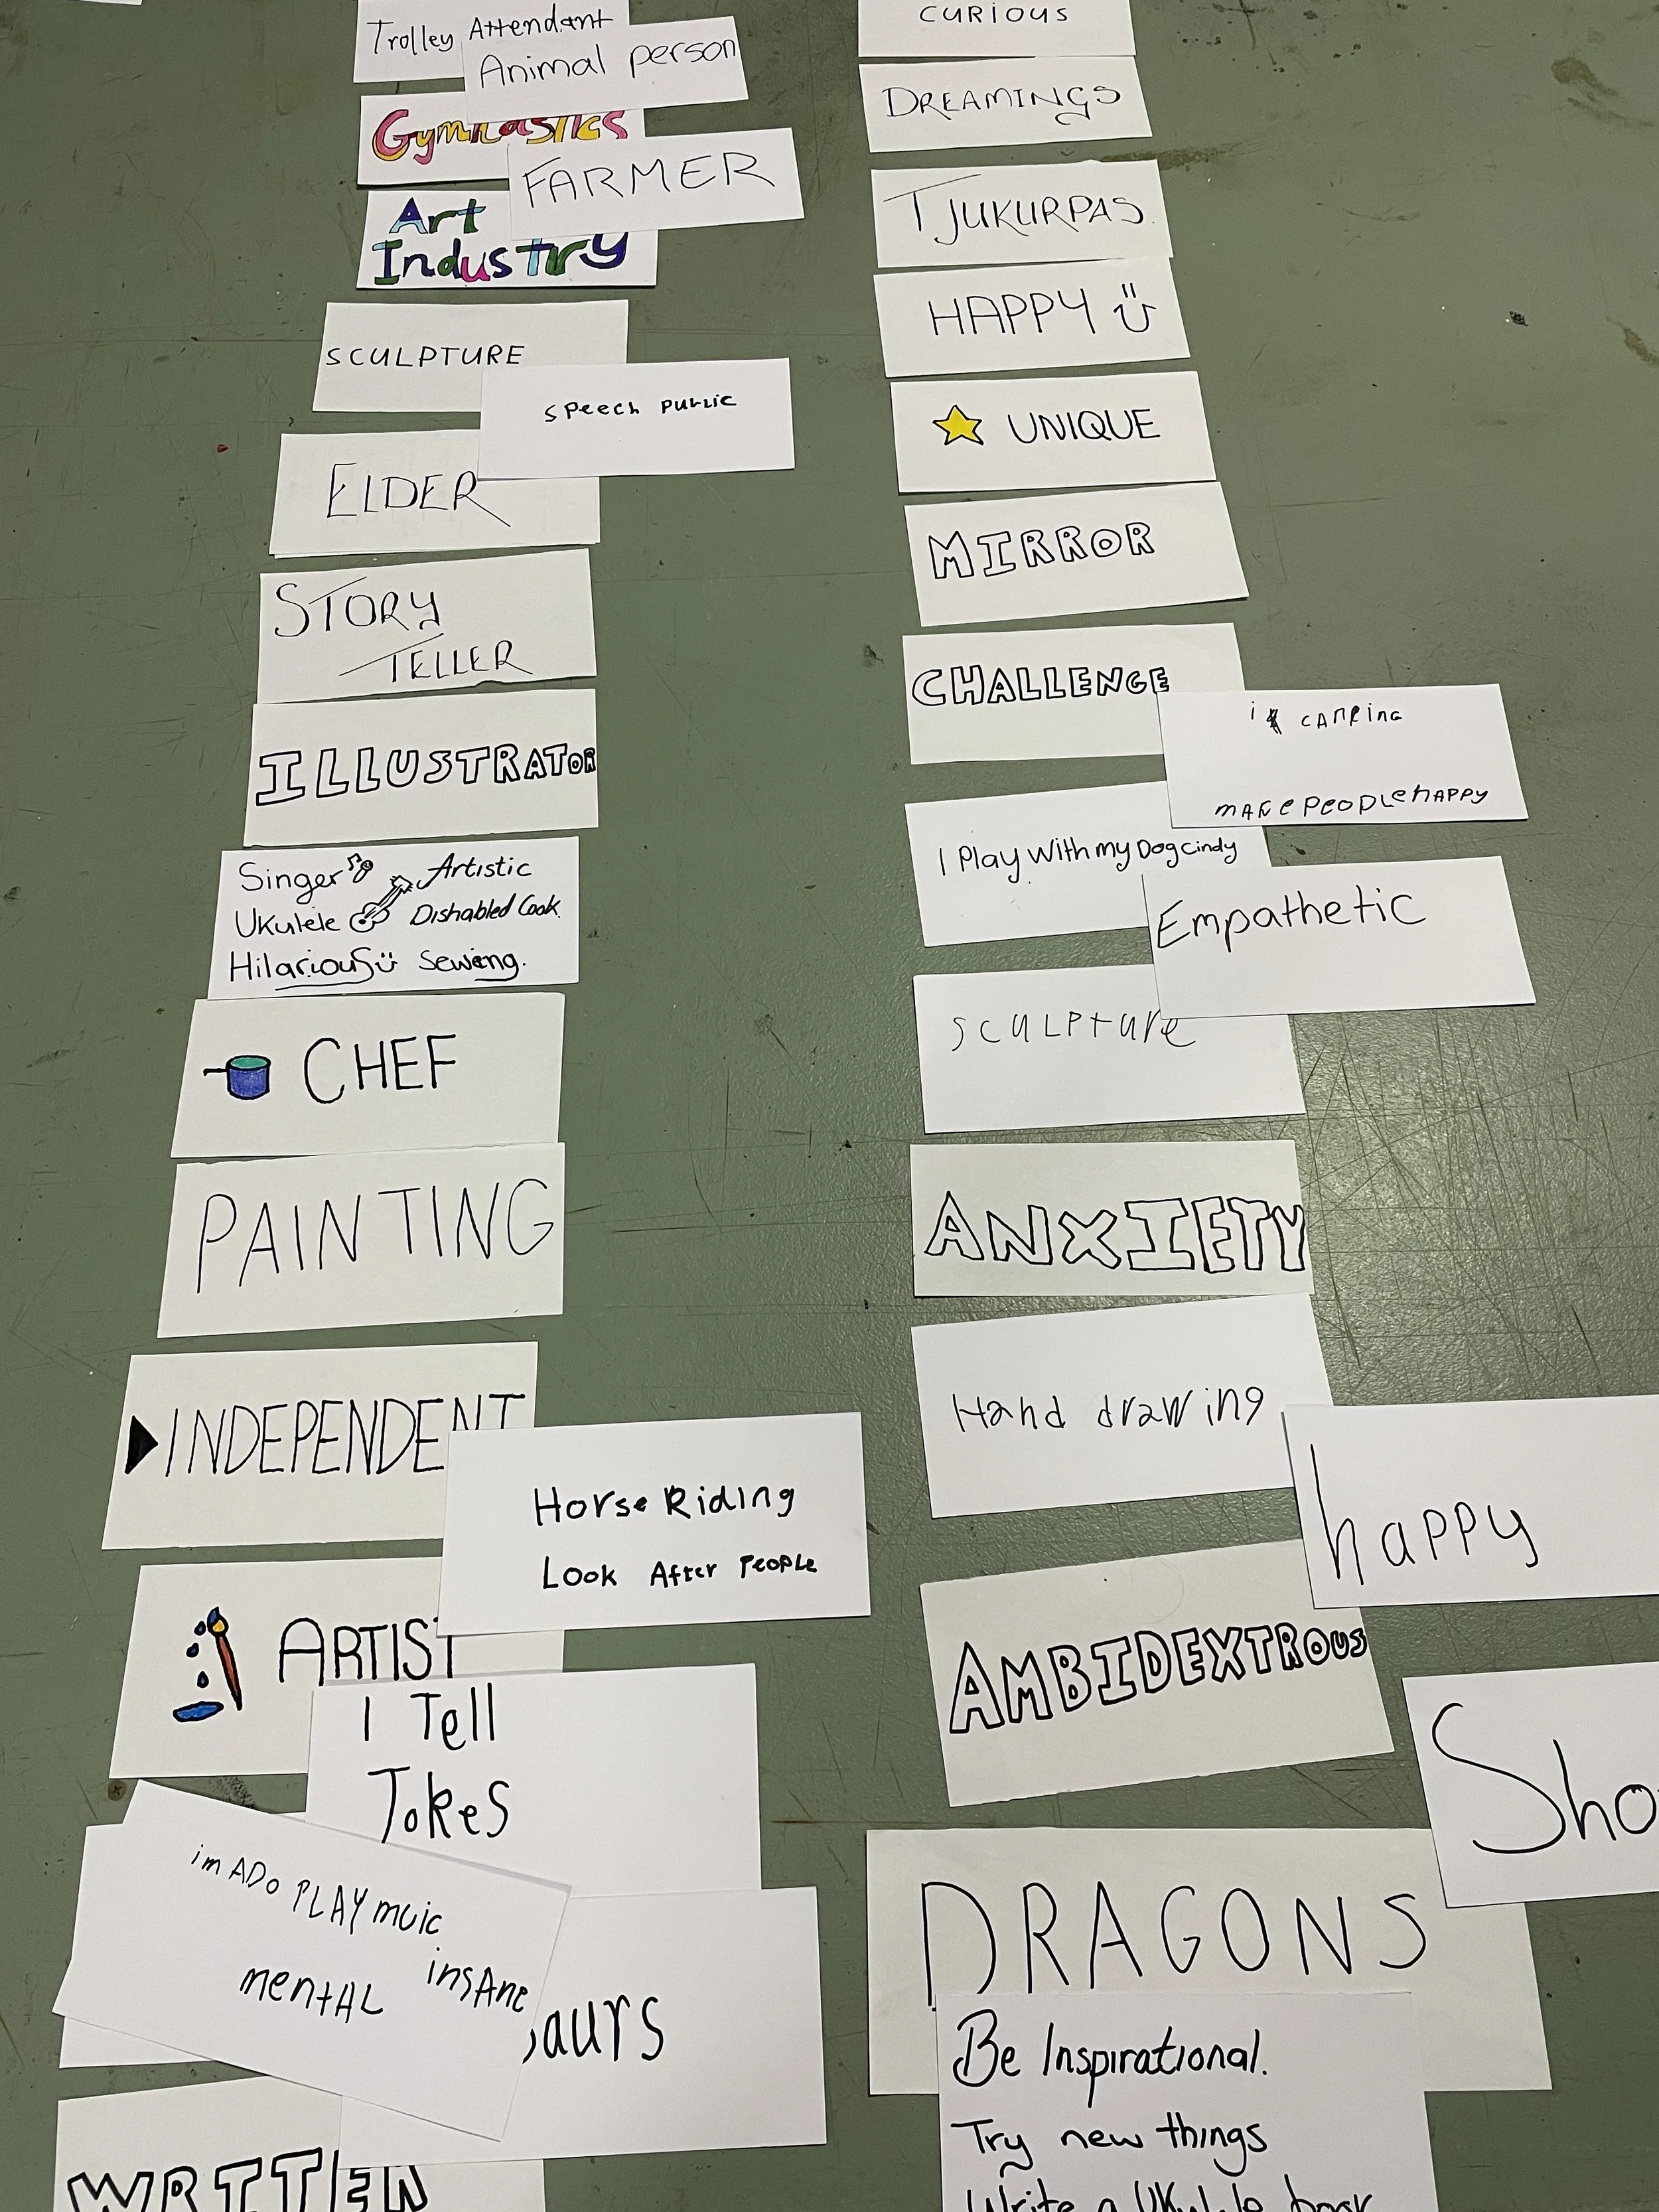 Trolley Attendant
Animal person
Gymnastics
FARMER
Art
Industry
SCULPTURE
SPeech PUBLIC
ELDER
STORY
TELLER
ILLUSTRATOR
Singer Artistic
UKulele Dishabled Cook
Hilarious Sewing.
CHEF
PAINTING
INDEPENDENT
Horse Riding
Look After People
ARTIST
I Tell
Jokes
im ADo PLAY muic
mentAL insAne
aurs
WRITTEN
CURIOUS
DREAMINGS
TJUKURPAS
HAPPY
UNIQUE
MIRROR
CHALLENGE
i CAMPing
mAKePeoPLehAPPy
I Play With my Dog Cindy
Empathetic
SCULPture
ANXIETY
Hand drawing
happy
AMBIDEXTROUS
Sho
DRAGONS
Be Inspirational.
Try new things
Write a UKulele book